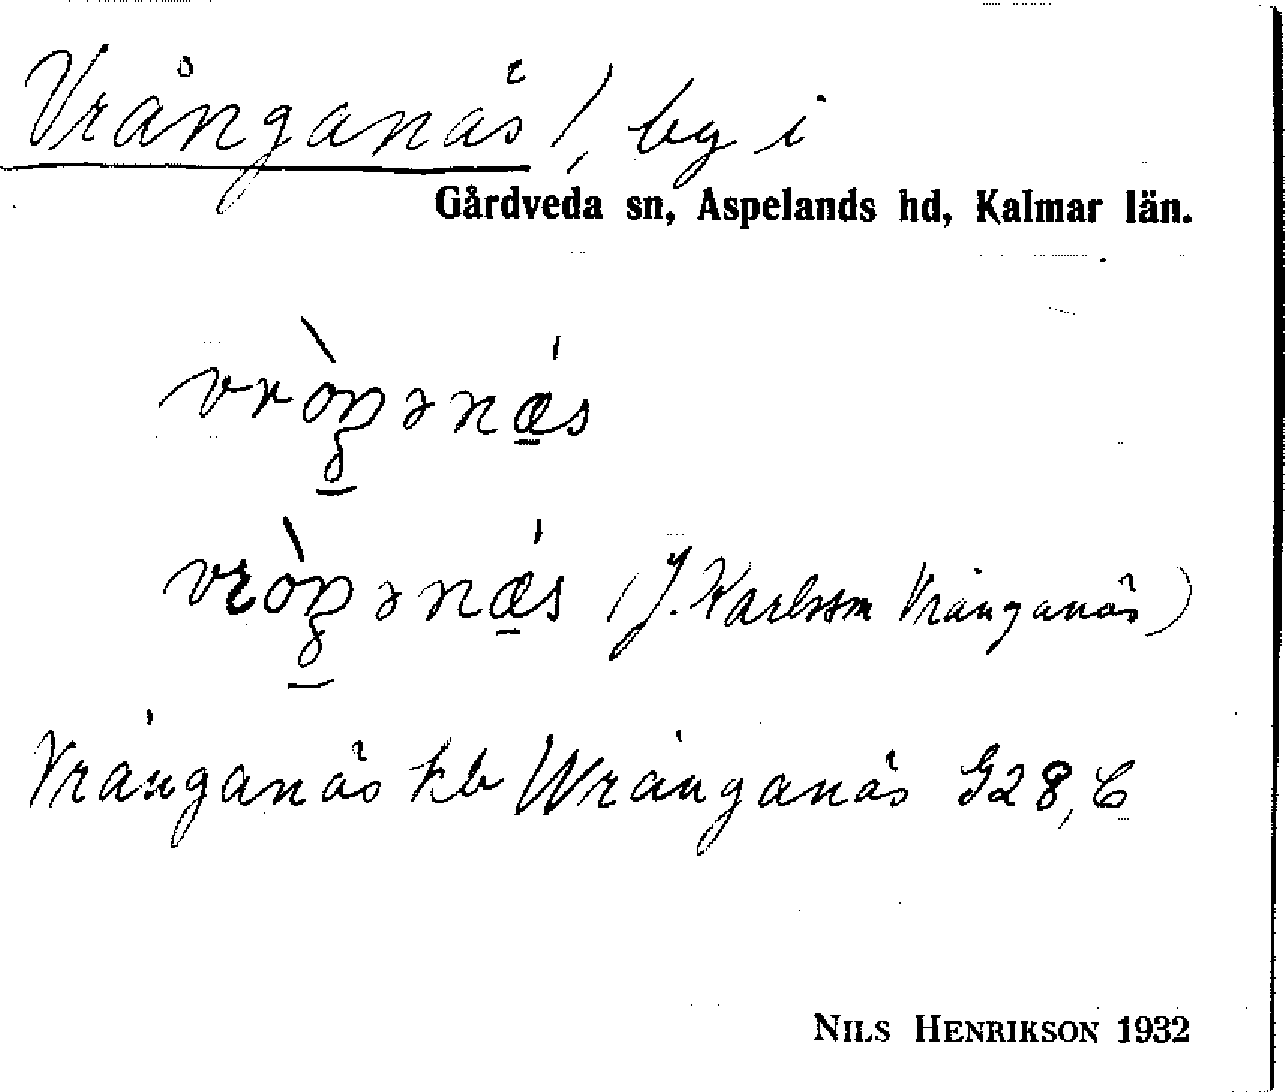 Vrånganäs /, by i
Gårdveda sn, Aspelands hd, Kalmar län.
vròŋənǽs
vròŋənǽs (J. Karlsson Vrånganäs)
Vrånganäs kb Wrånganäs G28, C
NILS HENRIKSON 1932